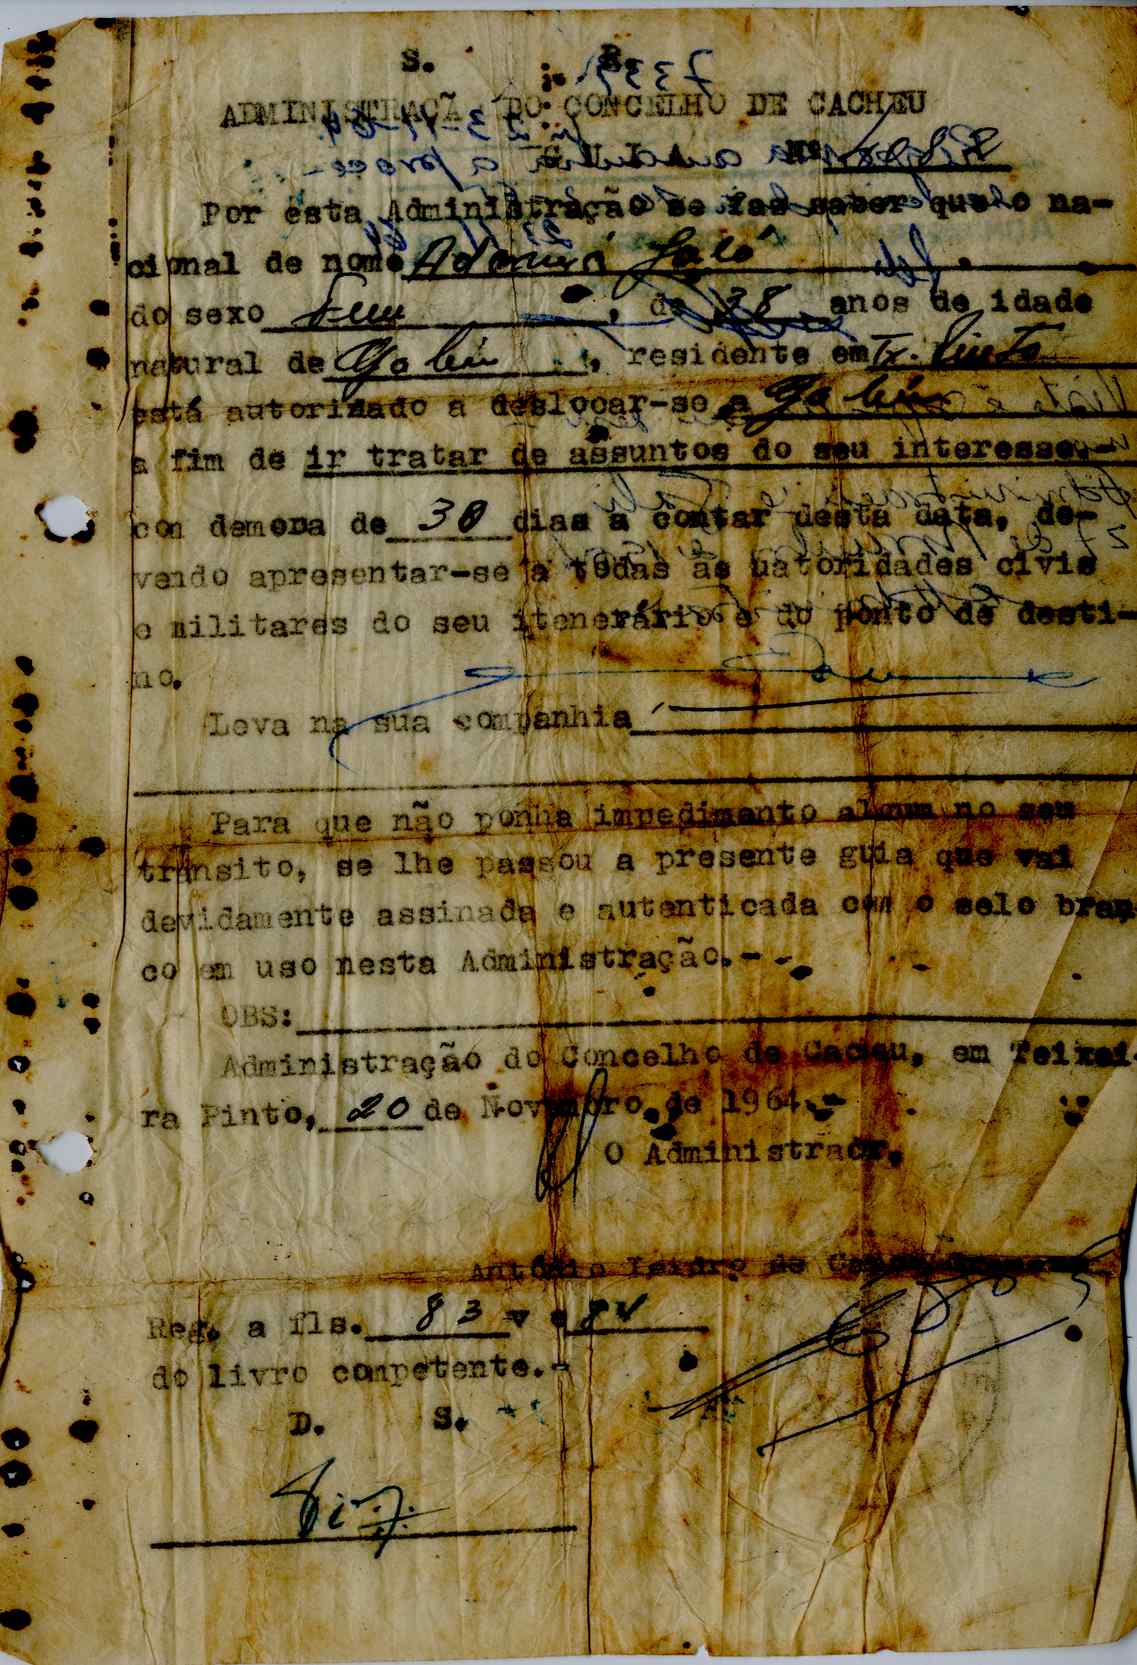 S. R.
ADMINISTRAÇÃ DO CONCELHO DE CACHEU
Nº
Por esta Administração se fas saber que o na-
cional de nome Adamá Jaló
do sexo Fem, de 38 anos de idade
natural de Gabú, residente em Tx. Pinto
está autorizado a deslocar-se a Gabú
a fim de ir tratar de assuntos do seu interesse.-
con demora de 30 dias a contar desta data, de-
vendo apresentar-se a todas as uatoridades civis
e militares do seu itenerário e do ponto de desti-
no.
Leva na sua companhia
Para que não ponha impedimento algum no seu
trânsito, se lhe passou a presente guia que vai
devidamente assinada e autenticada com o selo bran
co em uso nesta Administração.-
OBS:
Administração do Concelho de Cacheu, em Teixei-
ra Pinto, 20 de Novembro de 1964.-
O Administraor.
António Isidro de
Reg. a fls. 83 v e 84
do livro competente.-
D. S.